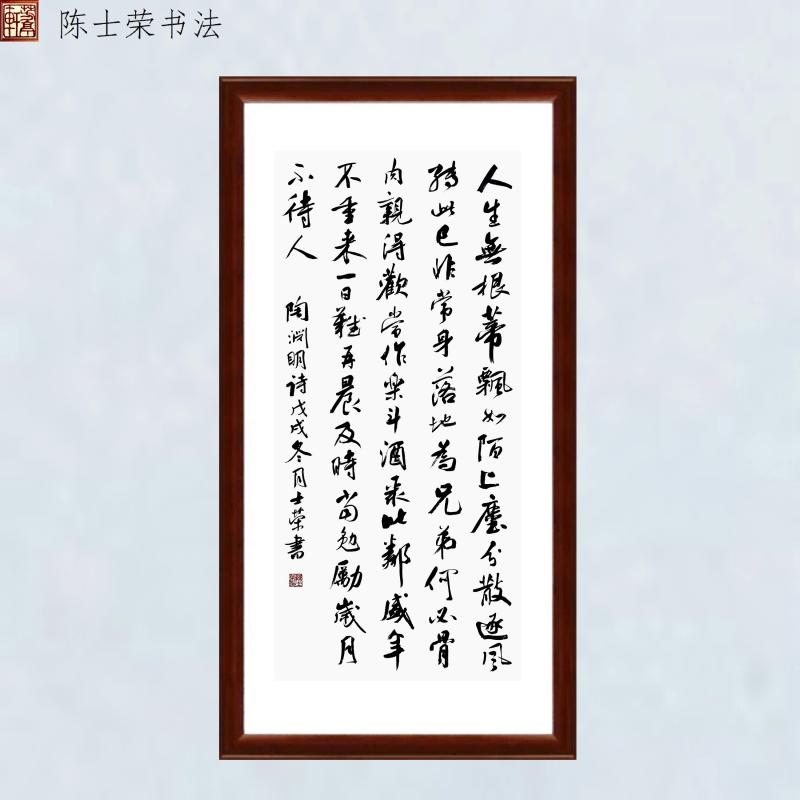 陈士荣书法
人生無根蒂飄如陌上塵分散逐風
轉此已非常身落地為兄弟何必骨
肉親得歡當作樂斗酒聚比鄰盛年
不重来一日難再晨及時當勉勵歲月
不待人 陶淵明诗戊戌冬月士荣書